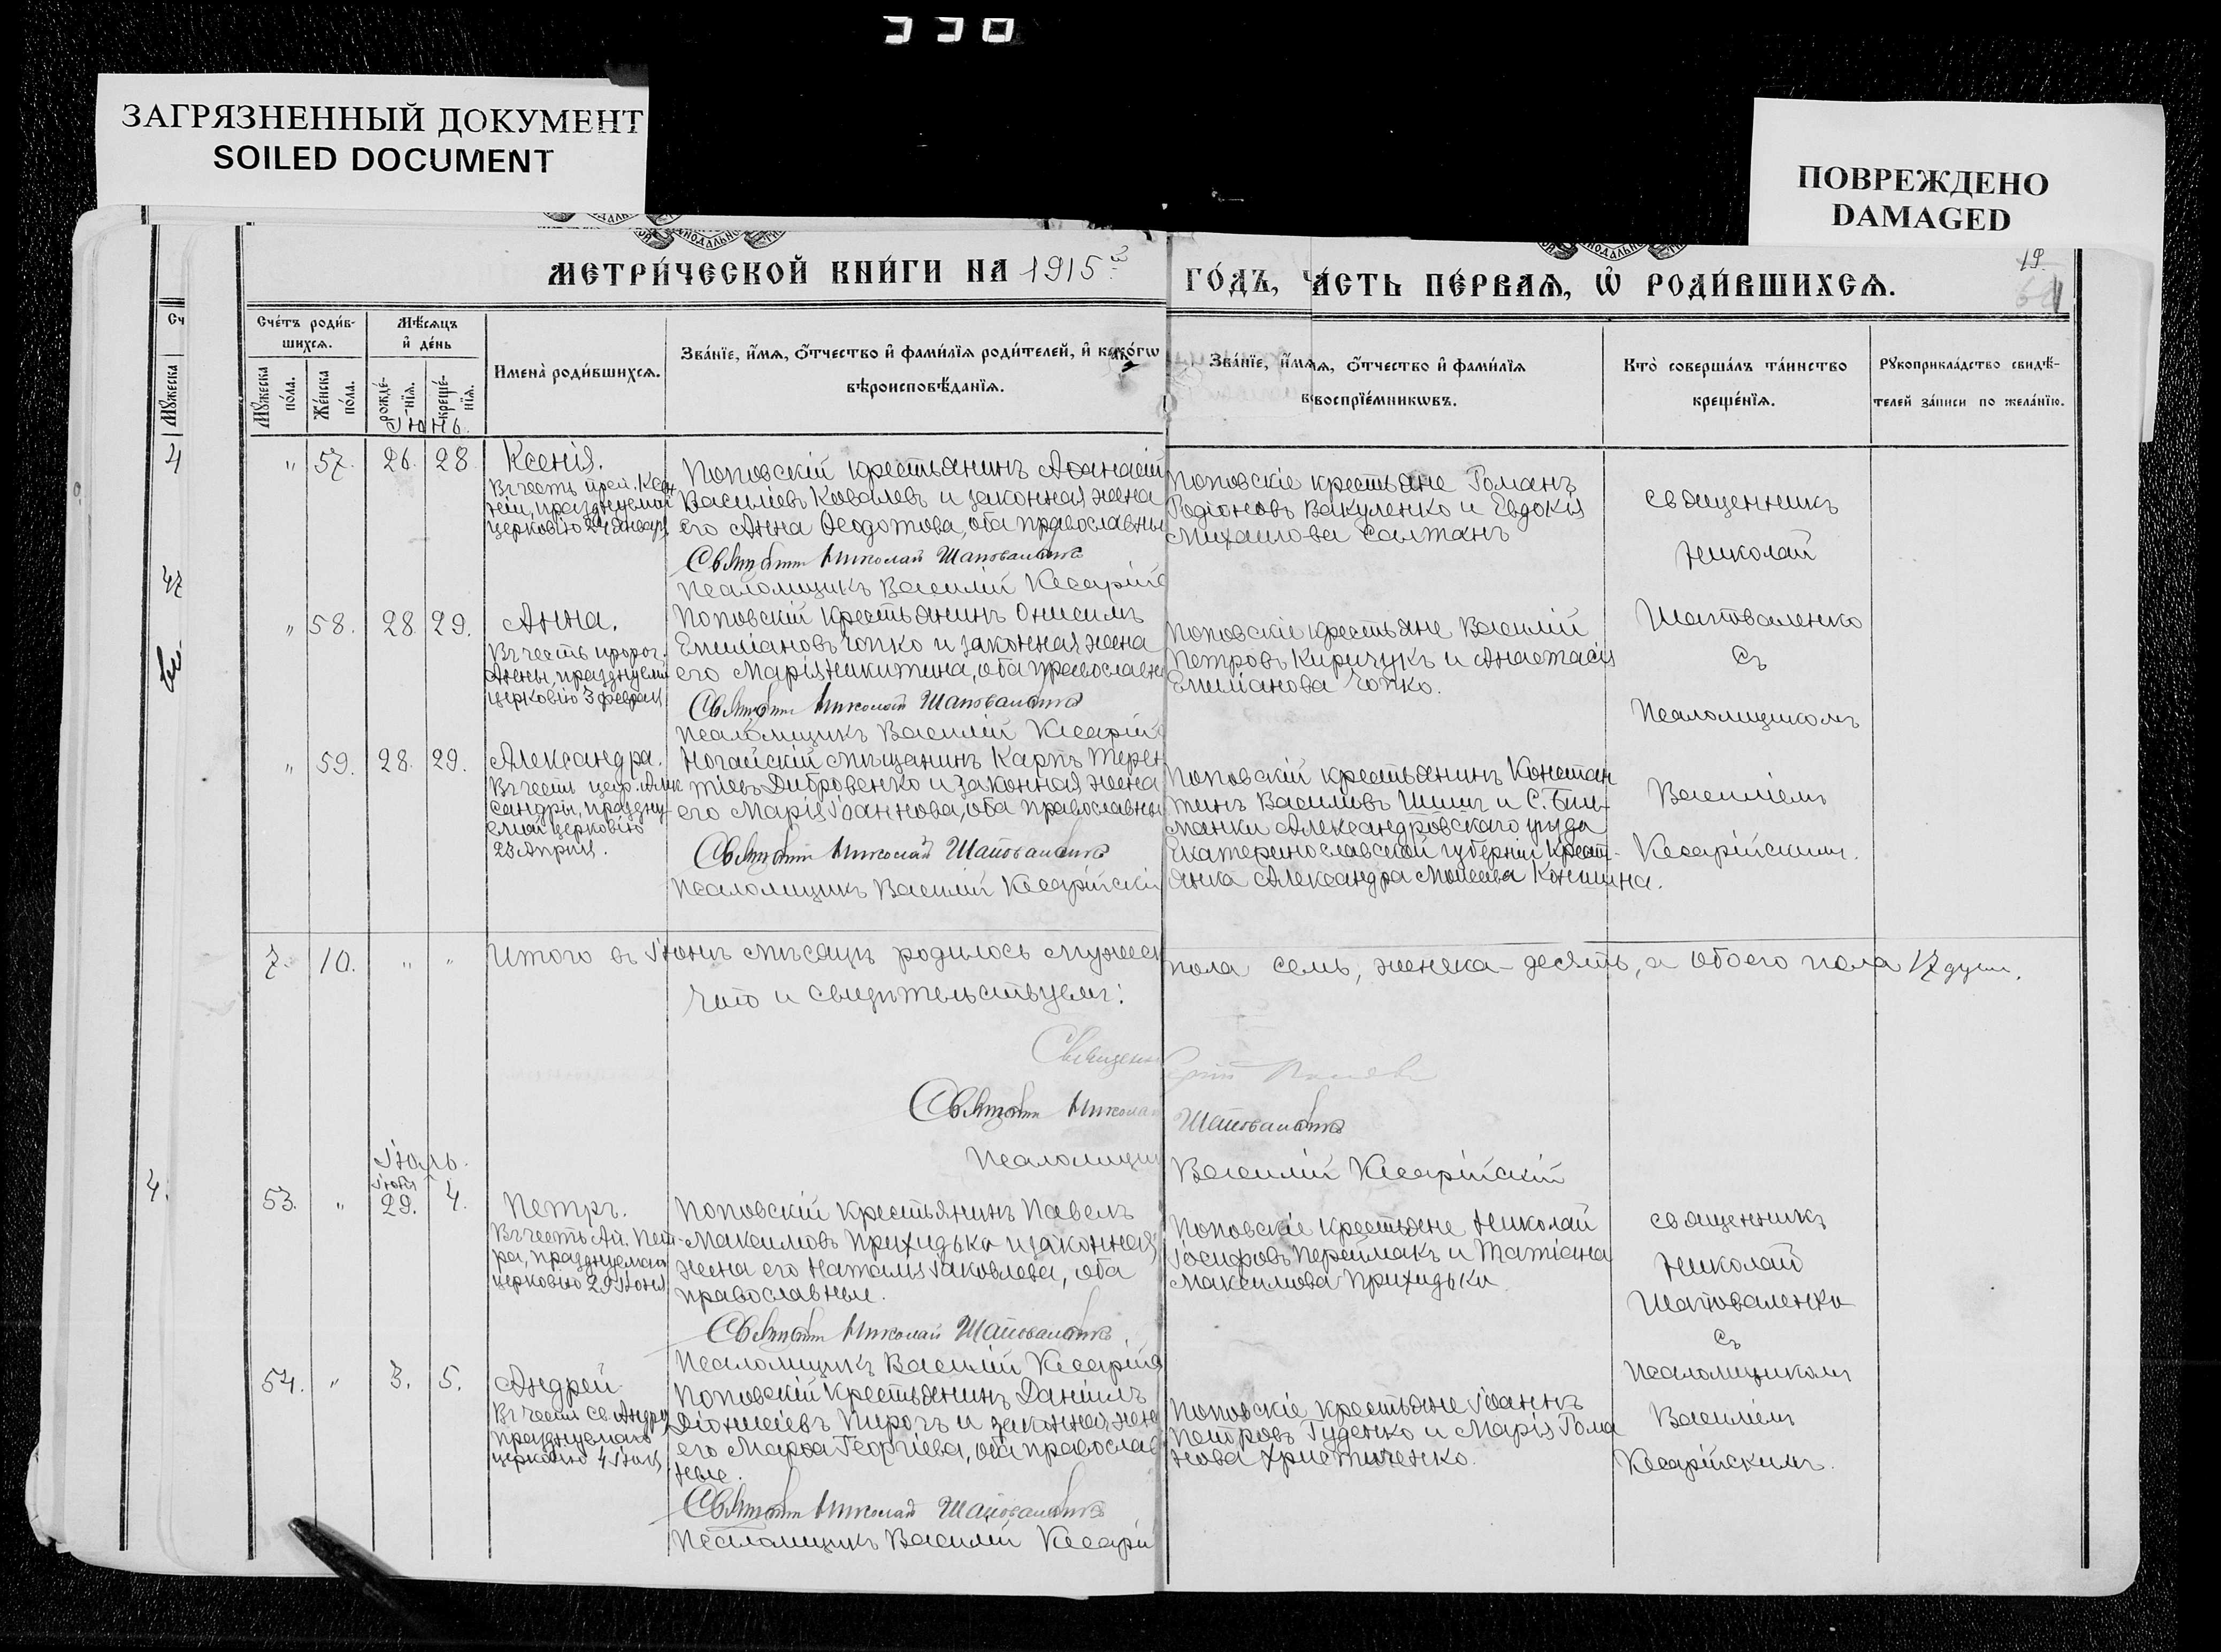 ЗАГРЯЗНЕННЫЙ ДОКУМЕНТ
SOILED DOCUMENT
ПОВРЕЖДЕНО
DAMAGED
МЕТРИ́ЧЕСКОЙ КНИ́ГИ НА 1915
ГО́ДЪ, ЧА́СТЬ ПЕ́РВАЯ, Ѡ҆ РОДИ́ВШИХСЯ.
19.
Сче́тъ роди́в-
шихся.
Мѣ́сяцъ
и҆ де́нь
Мꙋ́жеска по́ла.
Же́нска по́ла.
рожде́-нїя.
креще́-нїя.
Имена̀ роди́вшихся.
Зва́нїе, и҆́мя, ѻ҆́тчество и҆ фами́лїя роди́телей, и҆ како́гѡ
вѣроисповѣ́данїя.
Зва́нїе, и҆́мя, ѻ҆́тчество и҆ фами́лїя
воспрїе́мникѡвъ.
Кто̀ соверша́лъ та́инство
креще́нїя.
Рꙋкоприкла́дство свидѣ́-
телей за́писи по жела́нїю.
Іюнь.
" 57. 26. 28 Ксенія.
Въ честь преп. Ксе-
ніи, празднуемой
церковію 24 Января
Поповскій крестьянинъ Аѳанасій
Василіевъ Ковалевъ и законная жена
его Анна Ѳеодотова, оба православны
Священникъ Николай Шаповаленко
Псаломщикъ Василій Кесарійс
Поповскіе крестьяне Романъ
Родіоновъ Вакуленко и Евдокія
Михаилова Салтанъ
Священникъ
Николай
Шаповаленко
съ
Псаломщикомъ
Василіемъ
Кесарійскимъ.
" 58. 28 29. Анна.
Въ честь пророч.
Анны, празднуемой
церковію 3 февраля
Поповскій крестьянинъ Онисимъ
Емиліановъ Чопко и законная жена
его Марія Никитина, оба православны
Священникъ Николай Шаповаленко
Псаломщикъ Василій Кесарійс
Поповскіе крестьяне Василій
Петровъ Киричукъ и Анастасія
Емиліанова Чопко.
" 59. 28. 29. Александра.
Въ честь цар. Алек
сандры, праздну-
емой церковію
23 Апрѣля.
Ногайскій мѣщанинъ Карпъ Терен
тіевъ Дибровенко и законная жена
его Марія Іоаннова, оба православны
Священникъ Николай Шаповаленко
Псаломщикъ Василій Кесарійскій
Поповскій крестьянинъ Констан
тинъ Василіевъ Шишъ и С. Биль-
манки Александровскаго уѣзда
Екатеринославской губерніи крест-
янка Александра Моисеева Коншина.
7. 10. " " Итого въ Іюнѣ мѣсяцѣ родилось мужеск
пола семь, женска - десять, а обоего пола 17 душъ.
Что и свидѣтельствуемъ:
Священ
Священникъ Никола
Шаповаленко
Псаломщи
Василій Кесарійскій
Іюль.
Іюня
53. " 29. 4. Петръ.
Въ честь Ап. Пет-
ра, празднуемаго
церковію 29 Іюня
Поповскій крестьянинъ Павелъ
Максимовъ Прихидько и законная
жена его Наталія Іаковлева, оба
православные.
Священникъ Николай Шаповаленко
Псаломщикъ Василій Кесарійс
Поповскіе крестьяне Николай
Іосифовъ Переймакъ и Татіана
Максимова Прихидько
священникъ
Николай
Шаповаленко
съ
псаломщикомъ
Василіемъ
Кесарійскимъ.
54. " 3. 5. Андрей.
Въ честь св. Андрея
празднуемаго
церковію 4 Іюля
Поповскій крестьянинъ Даніилъ
Діонисіевъ Пирогъ и законная жена
его Марѳа Георгіева, оба православ
ные.
Священникъ Николай Шаповаленко
Псаломщикъ Василій Кесарій
Поповскіе крестьяне Іоаннъ
Петровъ Гуденко и Марія Рома
нова Христиченко.